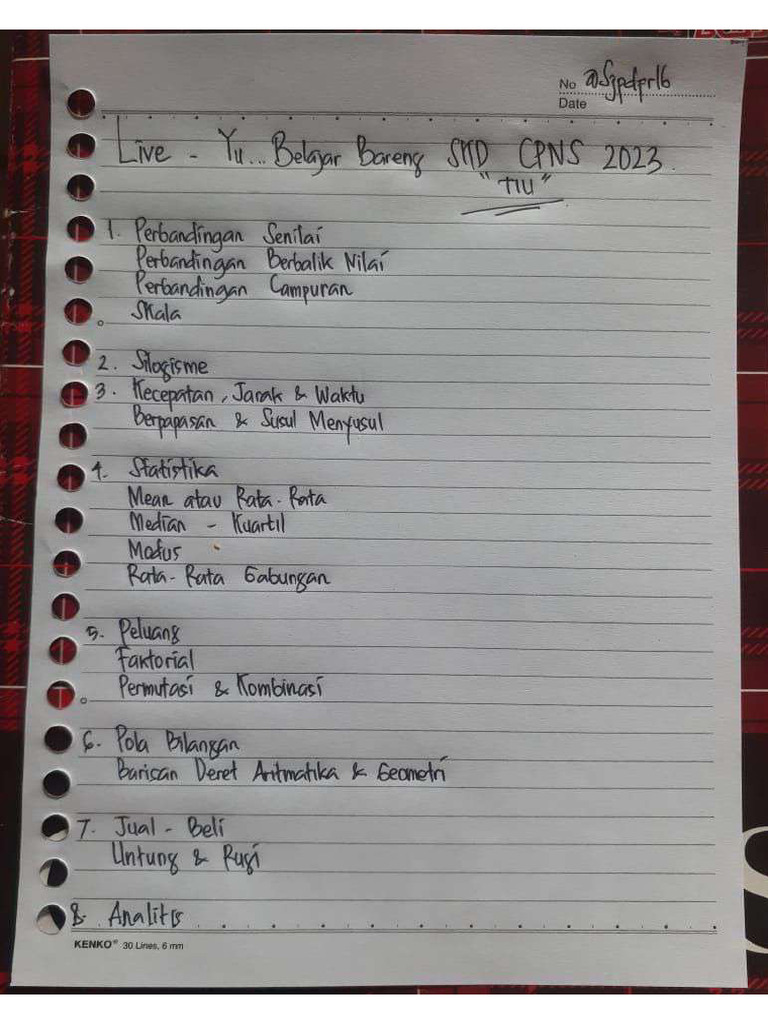 No @Szpdpr16
Date
Live - Yu... Belajar Bareng SKD CPNS 2023.
"TIU"
1. Perbandingan Senilai
Perbandingan Berbalik Nilai
Perbandingan Campuran
Skala
2. Silogisme
3. Kecepatan, Jarak & Waktu
Berpapasan & Susul Menyusul
4. Statistika
Mean atau Rata-Rata
Median - Kuartil
Modus
Rata-Rata Gabungan
5. Peluang
Faktorial
Permutasi & Kombinasi
6. Pola Bilangan
Barisan Deret Aritmatika & Geometri
7. Jual - Beli
Untung & Rugi
8. Analitis
KENKO® 30 Lines, 6 mm